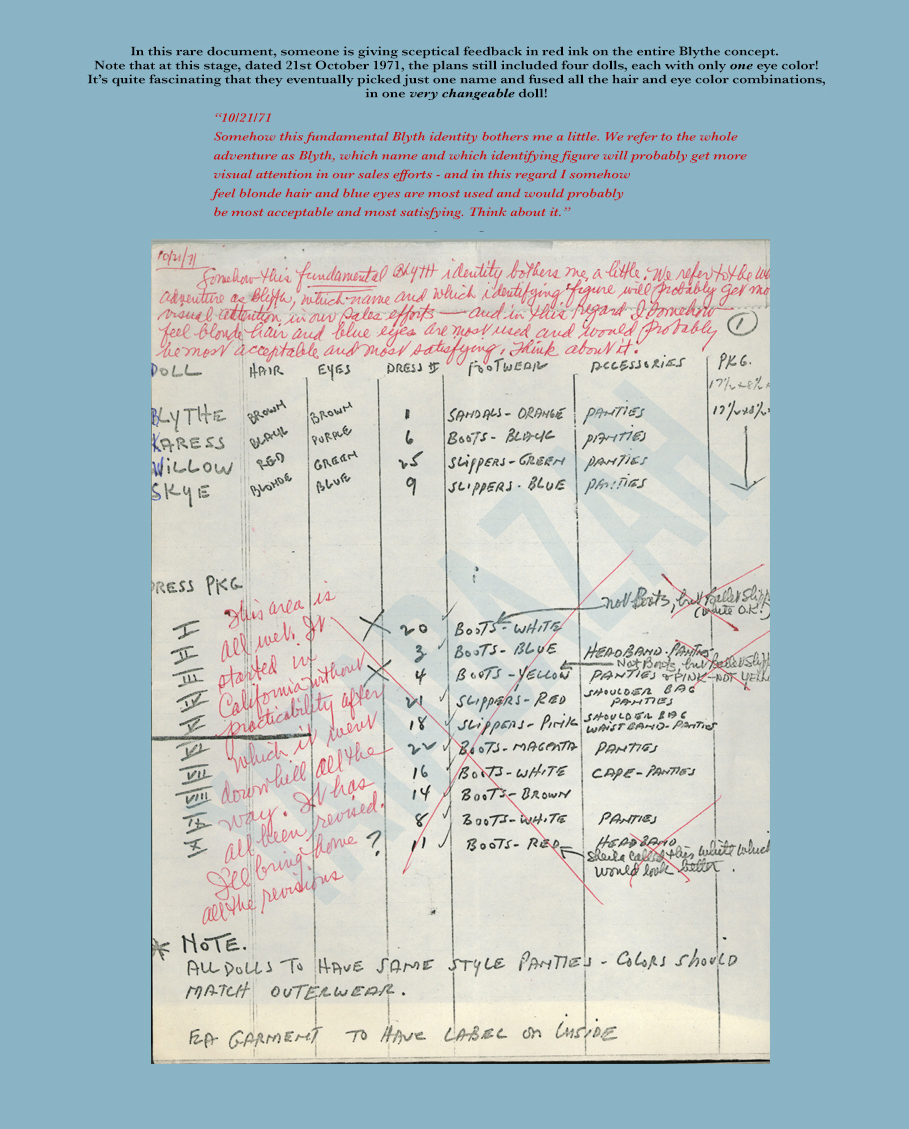 In this rare document, someone is giving sceptical feedback in red ink on the entire Blythe concept.
Note that at this stage, dated 21st October 1971, the plans still included four dolls, each with only one eye color!
It's quite fascinating that they eventually picked just one name and fused all the hair and eye color combinations,
in one very changeable doll!
“10/21/71
Somehow this fundamental Blyth identity bothers me a little. We refer to the whole
adventure as Blyth, which name and which identifying figure will probably get more
visual attention in our sales efforts - and in this regard I somehow
feel blonde hair and blue eyes are most used and would probably
be most acceptable and most satisfying. Think about it.”
10/21/71
Somehow this fundamental Blyth identity bothers me a little. We refer to the
adventure as Blyth, which name and which identifying figure will probably get
visual attention in our sales efforts — and in this regard I somehow
feel blonde hair and blue eyes are most used and would probably
be most acceptable and most satisfying. Think about it.
1
DOLL HAIR EYES DRESS # FOOTWEAR ACCESSORIES PKG.
BLYTHE BROWN BROWN 1 SANDALS - ORANGE PANTIES
KARESS BLACK PURPLE 6 BOOTS - BLACK PANTIES
WILLOW RED GREEN 25 SLIPPERS - GREEN PANTIES
SKYE BLONDE BLUE 9 SLIPPERS - BLUE PANTIES
DRESS PKG
This area is
all wet. It
started in
California without
practicability after
which it went
downhill all the
way. It has
all been revised.
I'll bring home
all the revisions
not Boots, but Ballet
(White O.K.)
20 BOOTS - WHITE
3 BOOTS - BLUE HEADBAND - PANTIES
Not Boots, but Ballet
4 BOOTS - YELLOW PANTIES & PINK - NOT
21 SLIPPERS - RED SHOULDER BAG
PANTIES
18 SLIPPERS - PINK SHOULDER BAG
WAISTBAND - PANTIES
22 BOOTS - MAGENTA PANTIES
16 BOOTS - WHITE CAPE - PANTIES
14 BOOTS - BROWN
8 BOOTS - WHITE PANTIES
? 11 BOOTS - RED HEADBAND
Sheila called this white which
would look better.
* NOTE.
ALL DOLLS TO HAVE SAME STYLE PANTIES - COLORS SHOULD
MATCH OUTERWEAR.
EA GARMENT TO HAVE LABEL ON INSIDE